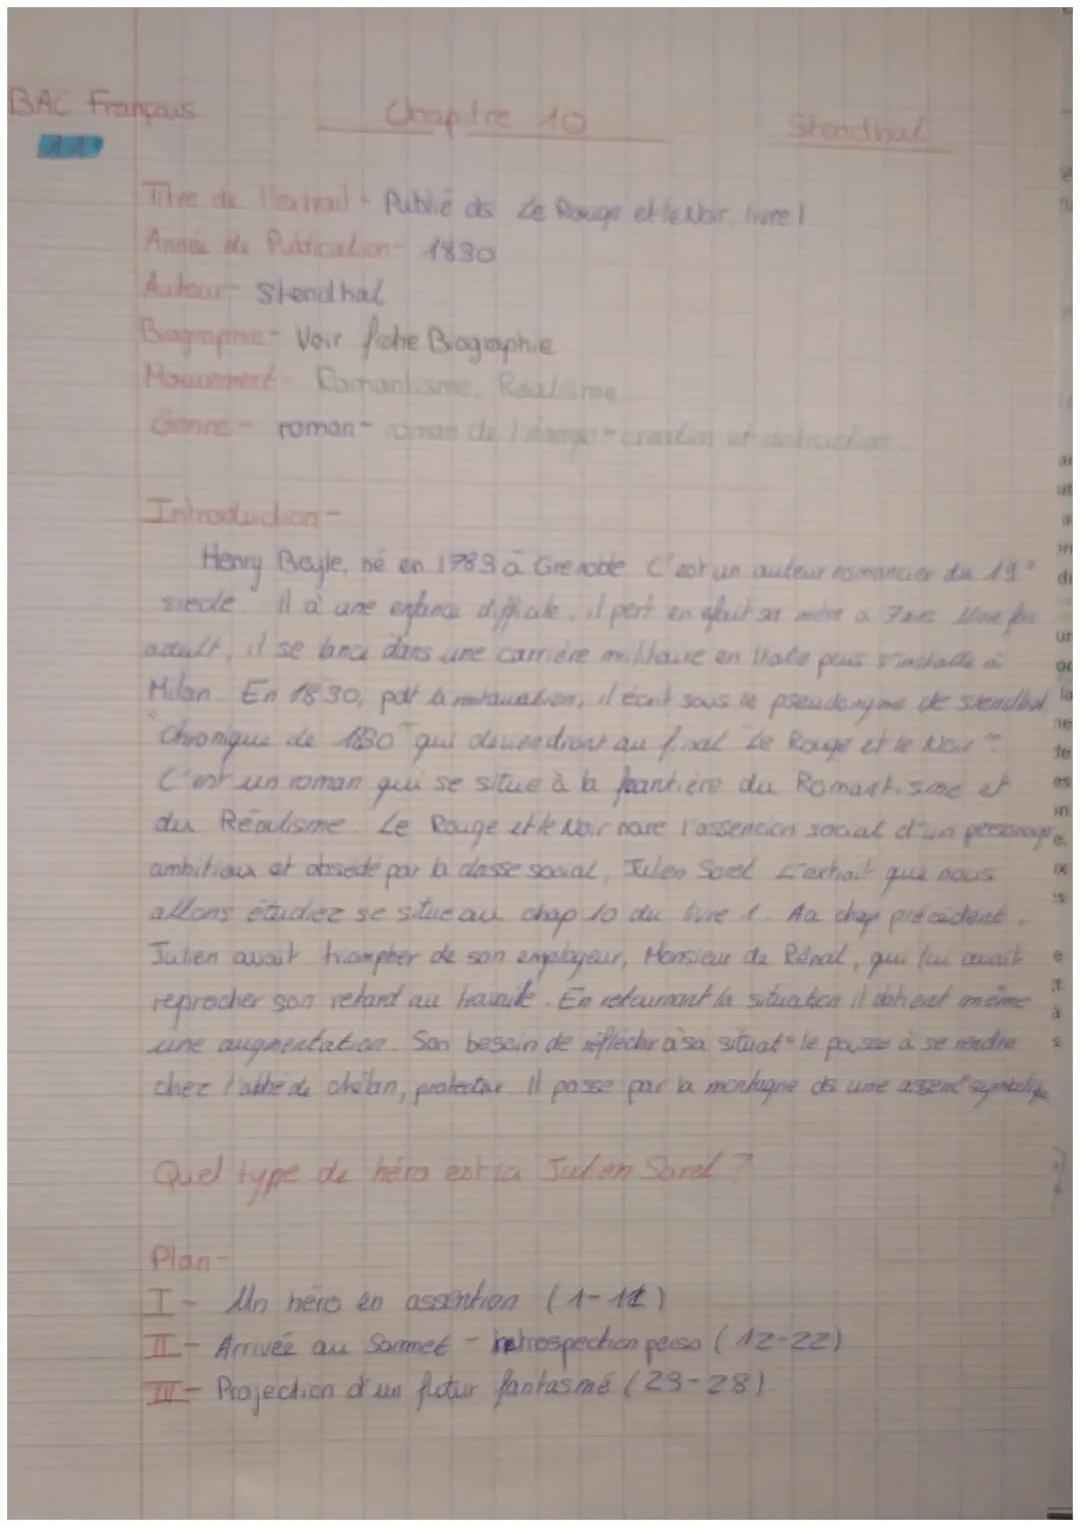 BAC Français
Chapitre 10
Stendhal
11°
Titre de l'extrait - Publié ds Le Rouge et le Noir, livre 1
Année de Publication - 1830
Auteur - Stendhal
Biographie - Voir fiche Biographie
Mouvement - Romantisme, Réalisme
Genre - roman - roman de l'énergie - création et destruction.
Introduction -
Henry Beyle, né en 1783 à Grenoble. C'est un auteur romancier du 19e
siècle. Il a une enfance difficile, il pert en efait sa mère a 7 ans. Une fois
adult, il se lance dans une carrière militaire en Italie puis s'installe à
Milan. En 1830, pdt la restauration, il écrit sous le pseudonyme de Stendhal
"Chronique de 1830" qui deviendront au final "Le Rouge et le Noir".
C'est un roman qui se situe à la frantière du Romantisme et
du Réalisme. Le Rouge et le Noir nare l'assencion social d'un personnage
ambitieux et obsédé par la classe social, Julien Sorel. L'extrait que nous
allons étudiez se situe au chap 10 du livre 1. Au chap précédent,
Julien avait triompher de son employeur, Monsieur de Rénal, qui lui avait
reprocher son retard au travaile. En retournant la situation il obtient même
une augmentation. Son besoin de réfléchir à sa situat° le pousse à se rendre
chez l'abbé de chélan, protecteur. Il passe par la montagne ds une assen° symbolique
Quel type de héro est ca Julien Sorel ?
Plan -
I - Un héro en assention (1-11)
II - Arrivée au Sommet - introspection perso (12-22)
III - Projection d'un futur fantasmé (23-28)